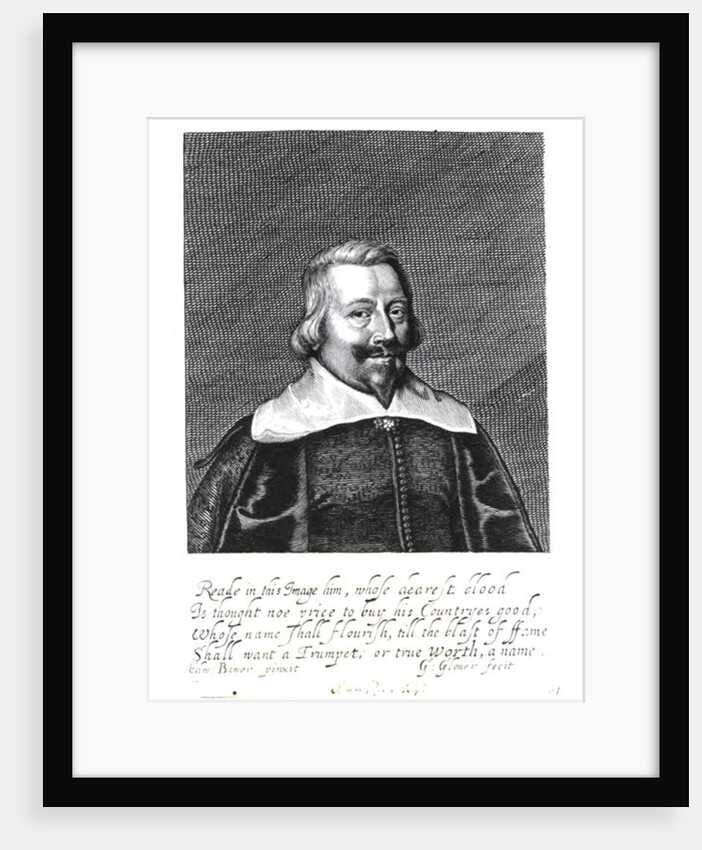 Reade in this Image him, whose dearest blood
Is thought noe price to buy his Countryes good,
Whose name shall flourish, till the blast of ffame
Shall want a Trumpet; or true Worth, a name.
Edw: Bower pinxit G: Glover fecit